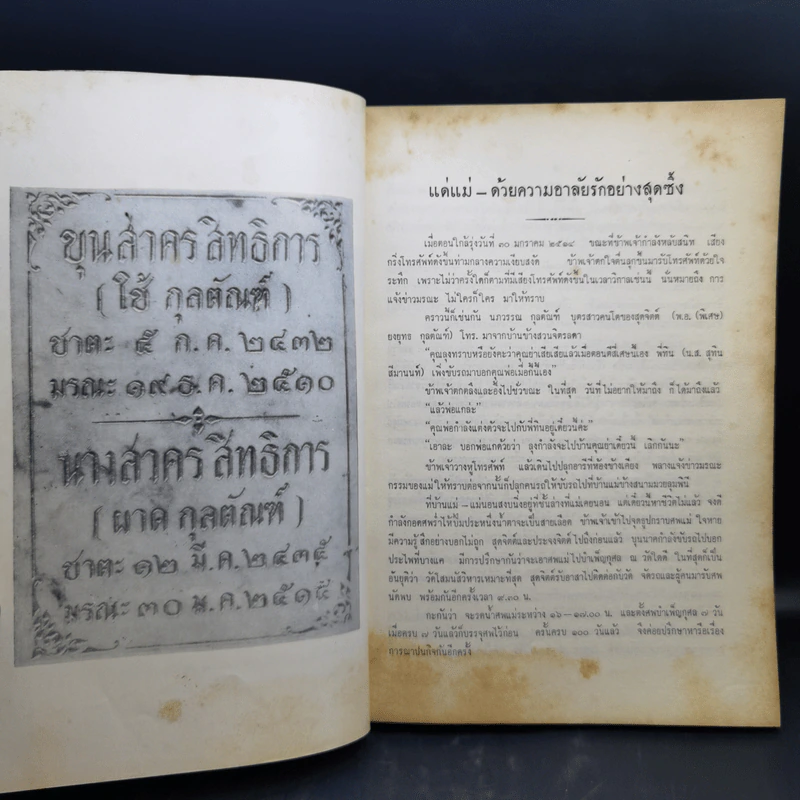 ขุนสาครสิทธิการ
(ใช้ กุลตัณฑ์)
ชาตะ ๕ ก.ค. ๒๔๓๒
มรณะ ๑๙ ธ.ค. ๒๕๑๐
นางสาครสิทธิการ
(ผาด กุลตัณฑ์)
ชาตะ ๑๒ มี.ค. ๒๔๓๕
มรณะ ๓๐ ม.ค. ๒๕๑๕
แด่แม่ – ด้วยความอาลัยรักอย่างสุดซึ้ง
เมื่อตอนใกล้รุ่งวันที่ ๓๐ มกราคม ขณะที่ข้าพเจ้ากำลังหลับสนิท เสียง
กริ่งโทรศัพท์ดังขึ้นท่ามกลางความเงียบสงัด ข้าพเจ้าตกใจตื่นลุกขึ้นมารับโทรศัพท์ด้วยใจ
ระทึก เพราะไม่ว่าครั้งใดก็ตามที่มีเสียงโทรศัพท์ดังขึ้นในเวลาวิกาลเช่นนี้ นั่นหมายถึง การ
แจ้งข่าวมรณะ ไม่ใครก็ใคร มาให้ทราบ
คราวนี้ก็เช่นกัน นภวรรณ กุลตัณฑ์ บุตรสาวคนโตของสุดจิตต์ (พ.อ. (พิเศษ)
ยงยุทธ กุลตัณฑ์) โทร. มาจากบ้านข้างสวนจิตรลดา
"คุณลุงทราบหรือยังคะว่าคุณย่าเสียเสียแล้วเมื่อตอนตีสี่เศษนี้เอง พี่ทิน (น.ส. สุทิน
สีมานนท์) เพิ่งขับรถมาบอกคุณพ่อเมื่อกี้นี้เอง"
ข้าพเจ้าตกตลึงและอึ้งไปชั่วขณะ ในที่สุด วันที่ไม่อยากให้มาถึง ก็ได้มาถึงแล้ว
"แล้วพ่อแกล่ะ"
"คุณพ่อกำลังแต่งตัวจะไปกับพี่ทินอยู่เดี๋ยวนี้ค่ะ"
"เอาละ บอกพ่อแกด้วยว่า ลุงกำลังจะไปบ้านคุณย่าเดี๋ยวนี้ เลิกกันนะ"
ข้าพเจ้าวางหูโทรศัพท์ แล้วเดินไปปลุกอารีที่ห้องข้างเคียง พลางแจ้งข่าวมรณะ
กรรมของแม่ให้ทราบต่อจากนั้นก็ปลุกคนรถให้ขับรถไปที่บ้านแม่ข้างสนามมวยลุมพินี
ที่บ้านแม่ – แม่นอนสงบนิ่งอยู่ที่ชั้นล่างที่แม่เคยนอน แต่เดี๋ยวนี้หาชีวิตไม่แล้ว
กำลังกอดศพร่ำไห้ปิ้มประหนึ่งน้ำตาจะเป็นสายเลือด ข้าพเจ้าเข้าไปจุดธูปกราบศพแม่ ใจหาย
มีความรู้สึกอย่างบอกไม่ถูก สุดจิตต์และประจงจิตต์ไปถึงก่อนแล้ว
มีการปรึกษากันว่าจะเอาศพแม่ไปบำเพ็ญกุศล ณ วัดใดดี ในที่สุดก็เป็น
อันยุติว่า วัดโสมนัสวิหารเหมาะที่สุด สุดจิตต์รับอาสาไปติดต่อกับวัด จัดรถและผู้คนมารับศพ
นัดพบ พร้อมกันอีกครั้งเวลา ๙.๓๐ น.
กะกันว่า จะรดน้ำศพแม่ระหว่าง ๑๖–๑๗.๐๐ น. และตั้งศพบำเพ็ญกุศล ๗ วัน
เมื่อครบ ๗ วันแล้วก็บรรจุศพไว้ก่อน ครั้นครบ ๑๐๐ วันแล้ว จึงค่อยปรึกษาหารือเรื่อง
การฌาปนกิจกันอีกครั้ง